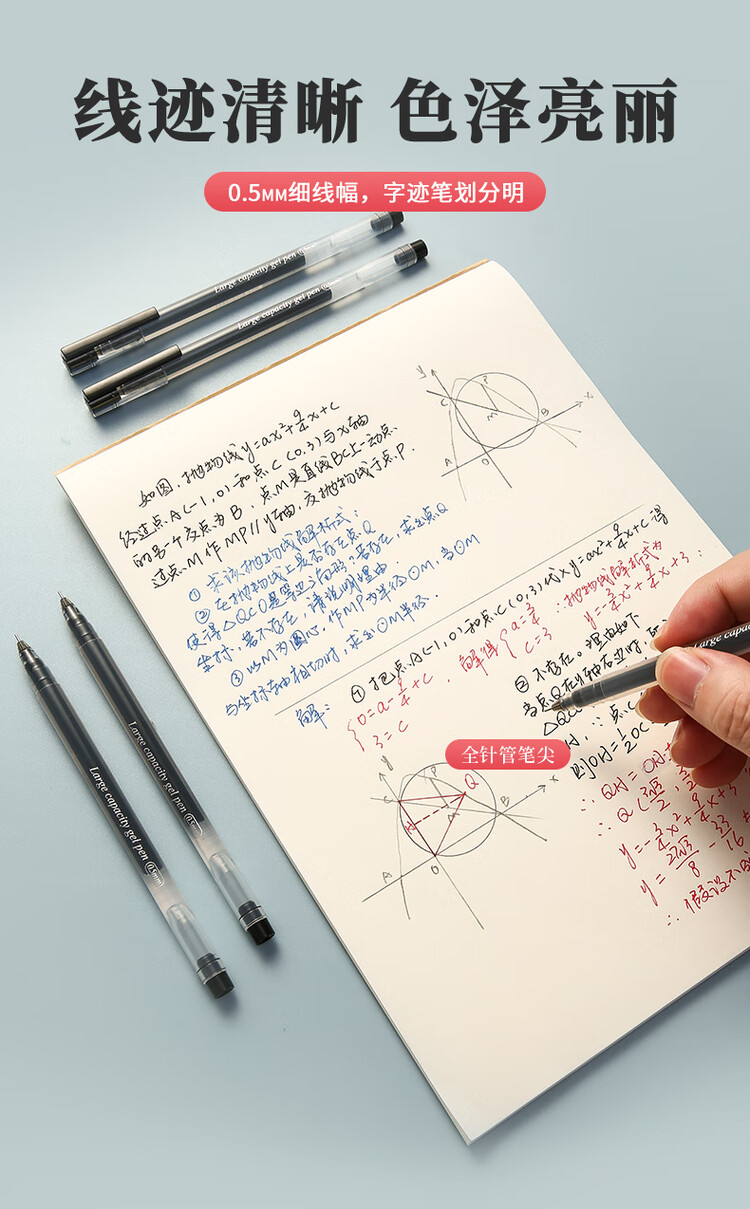 线迹清晰 色泽亮丽
0.5MM细线幅，字迹笔划分明
Large capacity gel pen 0.5mm
Large capacity gel pen
如图，抛物线y=ax²+9/4x+C
经过点A(-1,0)和点C(0,3)与x轴
的另一个交点为B，点M是直线BC上一动点，
过点M作MP//y轴，交抛物线于点P.
① 求该抛物线解析式：
② 在抛物线上是否存在点Q
使得△QCO是等边三角形，若存在，求出点Q
坐标，若不存在，请说明理由
③ 以M为圆心，作MP为半径⊙M，当⊙M
与坐标轴相切时，求出⊙M半径.
解：
① 把点A(-1,0)和点C(0,3)代入y=ax²+9/4x+C得
{0=a-9/4+C
3=C
解得{a=3/4
C=3
∴抛物线解析式为
y=-3/4x²+9/4x+3.
② 不存在。理由如下
当点Q在y轴右边时,
△QCO
H，∵点C
则OH=1/2OC
∴QH=OH
∴Q(
y=-3/4x²+9/4x+3
y=27√3/8-33/16
∴假设不
y
P
C
M
B
x
A
O
全针管笔尖
y
P
C
Q
H
M
B
x
A
O
Large capacity gel pen 0.5mm
Large capacity gel pen 0.5mm
Large capacity